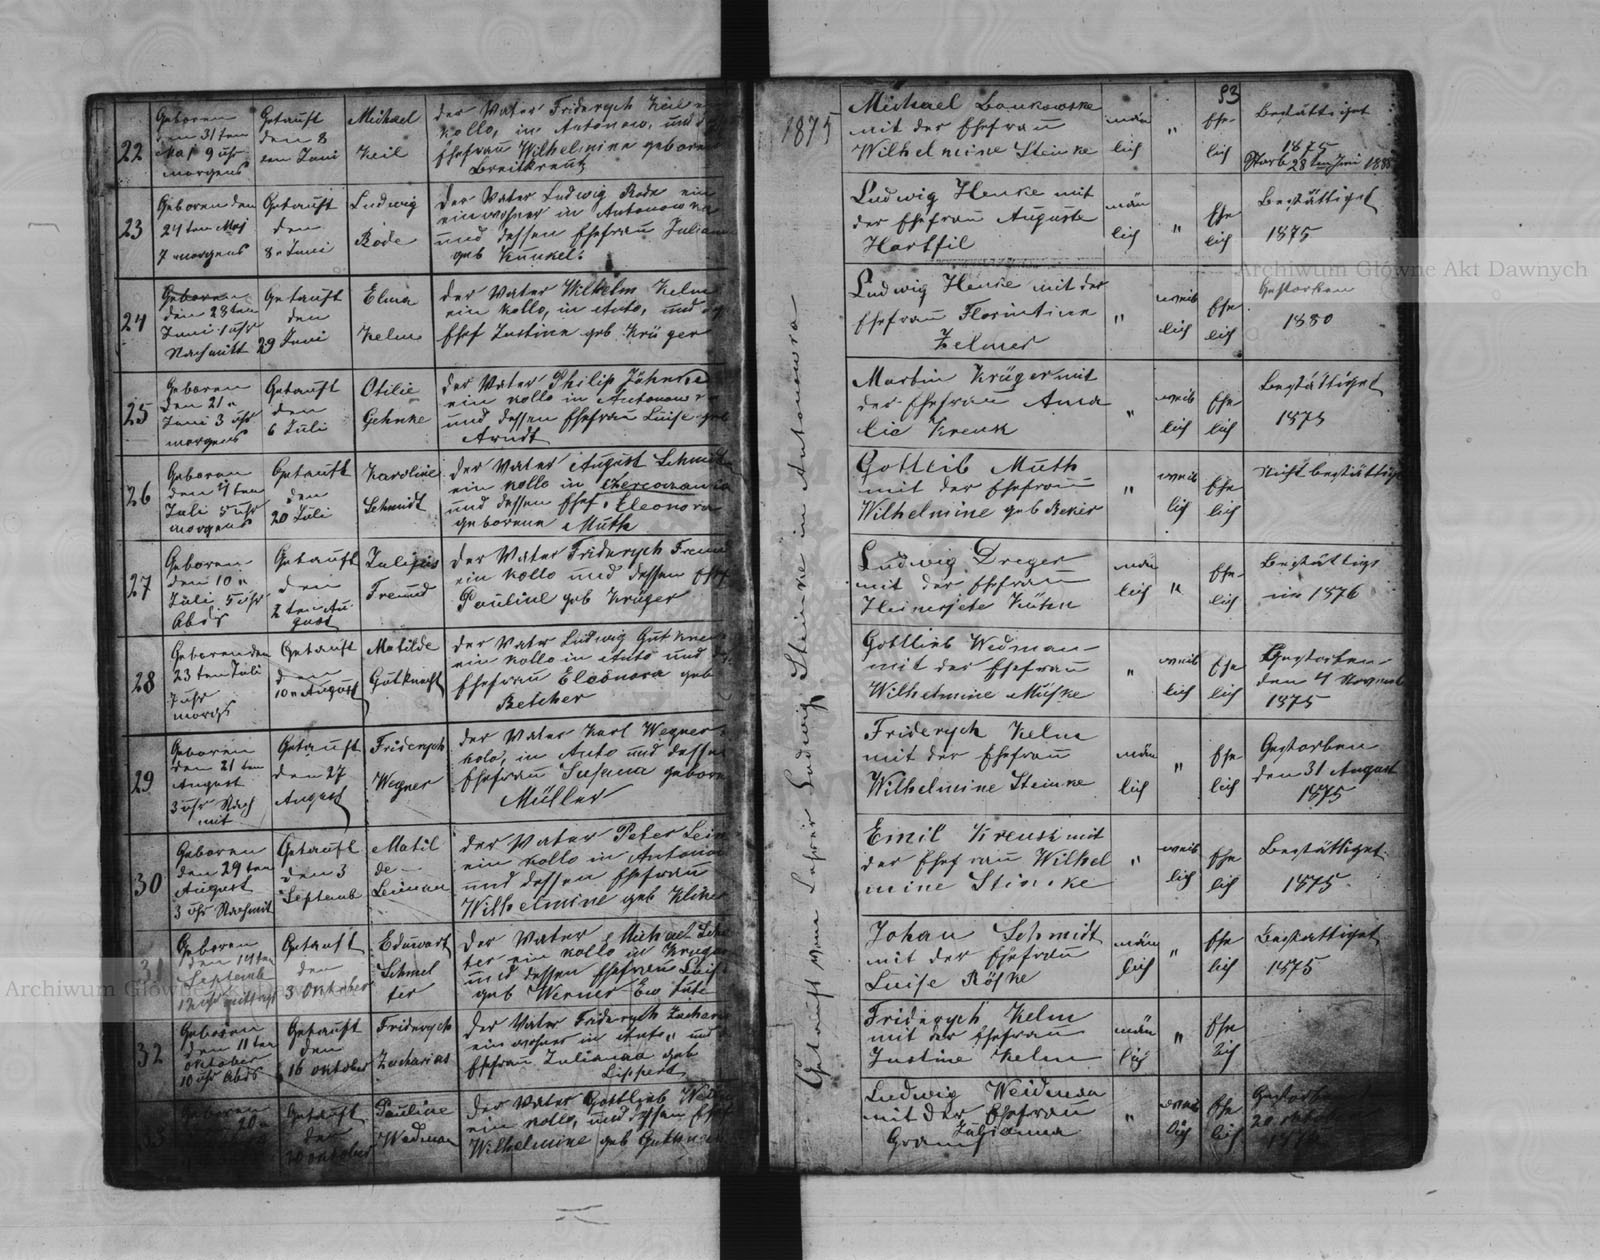 22
Geboren
den 31 ten
Mai 9 uhr
morgens
Getauft
den 8
ten Juni
Michael
Keil
der Vater Friderych Keil
Kollo, in Antonow, und
Ehefrau Wilhelmine geboren
Breitkreutz
23
Geboren den
24 ten Maj
7 morgens
Getauft
den
8 Juni
Ludwig
Rode
der Vater Ludwig Rode ein
einwohner in Antonowka
und dessen Ehefrau Julian
geb Kunkel
24
Geboren
den 28 ten
Juni 1 uhr
Nachmitt
Getauft
den
29 Juni
Elma
Kelm
der Vater Wilhelm Kelm
ein Kollo, in Anto, und
Ehef Justine geb Krüger
25
Geboren
den 21
Juni 3 uhr
morgens
Getauft
den
6 Juli
Otilie
Gehnke
der Vater Philip
ein Kollo in Antonow
und dessen Ehefrau Luise geb
Arndt
26
Geboren
den 4 ten
Juli 5 uhr
morgens
Getauft
den
20 Juli
Karoline
Schmidt
der Vater August Schmidt
ein Kollo in
und dessen Ehef. Eleonora
geborene Muth
27
Geboren
den 10
Juli 5 uhr
Abds
Getauft
den
2 ten Au
gust
Julijus
Freund
der Vater Friderych Freund
ein Kollo und dessen Ehef
Pauline geb Krüger
28
Geboren den
23 ten Juli
7 uhr
morgs
Getauft
den
10 August
Matilde
Gutknecht
der Vater Ludwig Gutkne
ein Kollo in Anto und
Ehefrau Eleonora geb
Betcher
29
Geboren
den 21 ten
August
3 uhr Nach
mit
Getauft
den 27
August
Friderych
Wegner
der Vater Karl Wegner
kolo, in Anto und dessen
Ehefrau Susana gebore
Müller
30
Geboren
den 29 ten
August
3 uhr Nachmit
Getauft
den 3
Septemb
Matil
de
Leiman
der Vater Peter Leim
ein Kollo in Antono
und dessen Ehefrau
Wilhelmine geb
31
Geboren
den 14 ten
Septemb
12 uhr mittags
Getauft
den
3 Oktober
Eduwart
Schmel
ter
der Vater Michael Sch
ter ein Kollo in
und dessen Ehefrau Luise
geb Werner Ew Lute
32
Geboren
den 11 ten
Oktober
10 uhr Abds
Getauft
den
16 Oktober
Friderych
Zacharias
der Vater Friderych Zachari
einwohner in Anto, und
Ehefrau Julianna geb
Lippert
33
Geboren
20
Getauft
den
Oktober
Pauline
Wedman
der Vater Gottlieb
ein Kollo, und dessen Ehef
Wilhelmine geb Gutkne
1875
Getauft vom Lehrer Ludwig Steinke in Antonowka
93
Michael Bonkowske
mit der Ehefrau
Wilhelmine Steinke
män
lich
"
Ehe
lich
Bestättiget
1875
Starb 28 ten Juni
Ludwig Henke mit
der Ehefrau Auguste
Hartfil
män
lich
"
Ehe
lich
Bestättiget
1875
Ludwig Henke mit der
Ehefrau Florintine
Zelmer
"
weib
lich
Ehe
lich
Gestorben
1880
Martin Krüger mit
der Ehefrau Ama
lie Kreusk
"
weib
lich
Ehe
lich
Bestättiget
1875
Gottlieb Muth
mit der Ehefrau
Wilhelmine geb Beker
"
weib
lich
Ehe
lich
Nicht bestättigt
Ludwig Dreger
mit der Ehefrau
Heinerjete Kühn
män
lich
"
Ehe
lich
Bestättigt
im 1876
Gottlieb Wedman
mit der Ehefrau
Wilhelmine Müske
"
weib
lich
Ehe
lich
Gestorben
den 4 November
1875
Friderych Kelm
mit der Ehefrau
Wilhelmine Steinke
män
lich
"
Ehe
lich
Gestorben
den 31 August
1875
Emil Kreusk mit
der Ehefrau Wilhel
mine Steinke
"
weib
lich
Ehe
lich
Bestättiget
1875
Johan Schmidt
mit der Ehefrau
Luise Röske
män
lich
"
Ehe
lich
Bestattiget
1875
Friderych Kelm
mit der Ehefrau
Justine Kelm
män
lich
"
Ehe
lich
Ludwig Weidman
mit der Ehefrau
Julianna
"
weib
lich
Ehe
lich
Archiwum Główne Akt Dawnych
Archiwum Główne Akt Dawnych